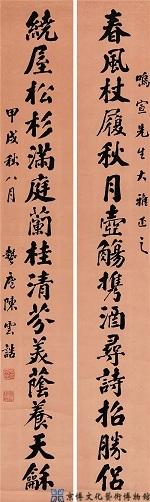 鳴宣先生大雅正之
春風杖履秋月壺觴攜酒尋詩招勝侶
繞屋松杉滿庭蘭桂清芬美蔭養天龢
甲戌秋八月
蟄廬陳雲誥
京博文化藝術博物館